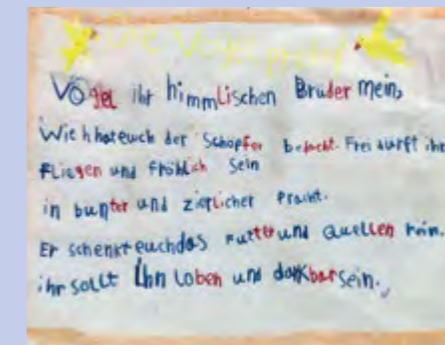 Die Vogelpredigt
Vögel ihr himmlischen Bruder mein,
Wie hhateuch der Schöpfer bedacht. Frei dürft ihr
Fliegen und fröhlich Sein
in bunter und zierlicher Pracht.
Er schenkt euchdas Futter und Quellen rein.
ihr sollt Ihn Loben und dankbar sein.